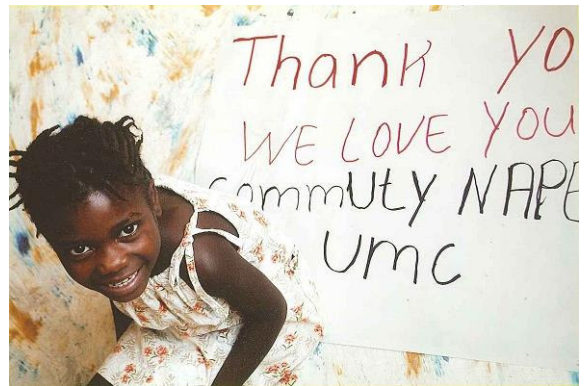 Thank YO
WE LOVE YOU
CommUty NAPE
UMC